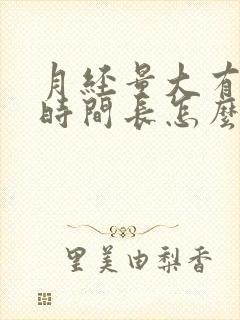 月經量大有
時間長怎麼
里美由梨香